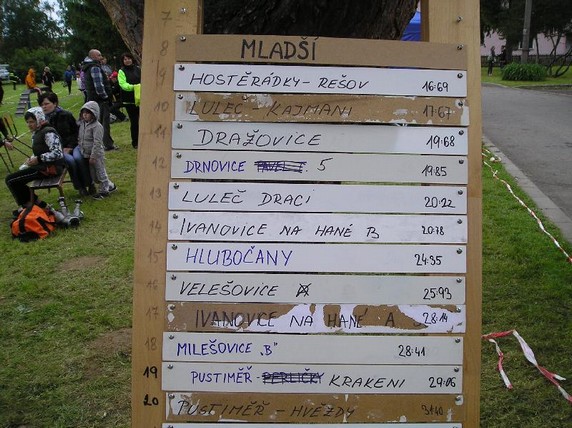 7
8 MLADŠÍ
9 HOSTĚRÁDKY-REŠOV 16:69
10 LULEČ - KAJMANI 17:67
11 DRAŽOVICE 19:68
12 DRNOVICE 5 19:85
13 LULEČ DRACI 20:22
14 IVANOVICE NA HANÉ B 20:78
15 HLUBOČANY 24:35
16 VELEŠOVICE 25:93
17 IVANOVICE NA HANÉ A 28:14
18 MILEŠOVICE „B" 28:41
19 PUSTIMĚŘ KRAKENI 29:06
20 PUSTIMĚŘ - HVĚZDY 31:40